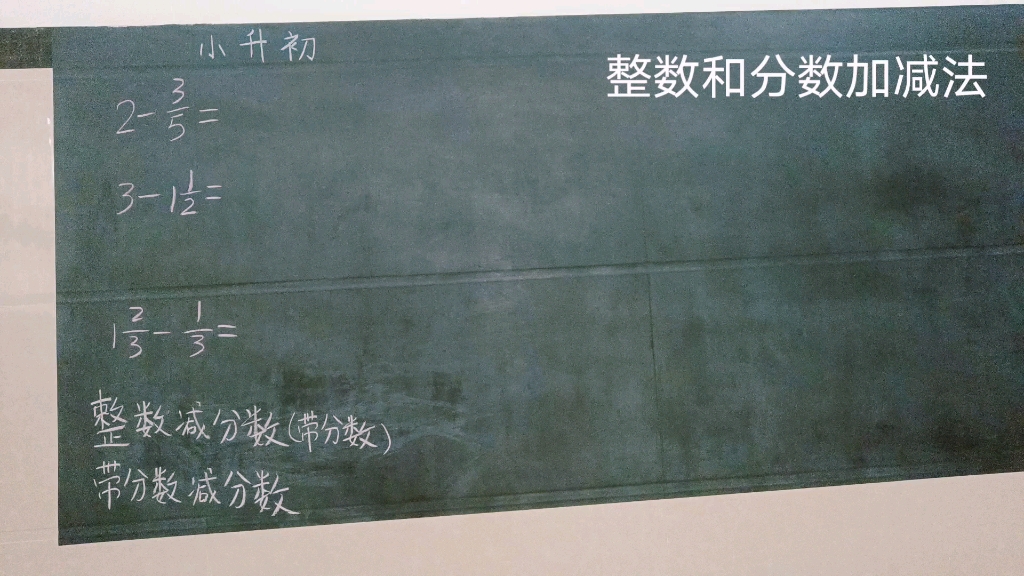 小升初
整数和分数加减法
2-3/5=
3-1 1/2=
1 2/3-1/3=
整数减分数(带分数)
带分数减分数